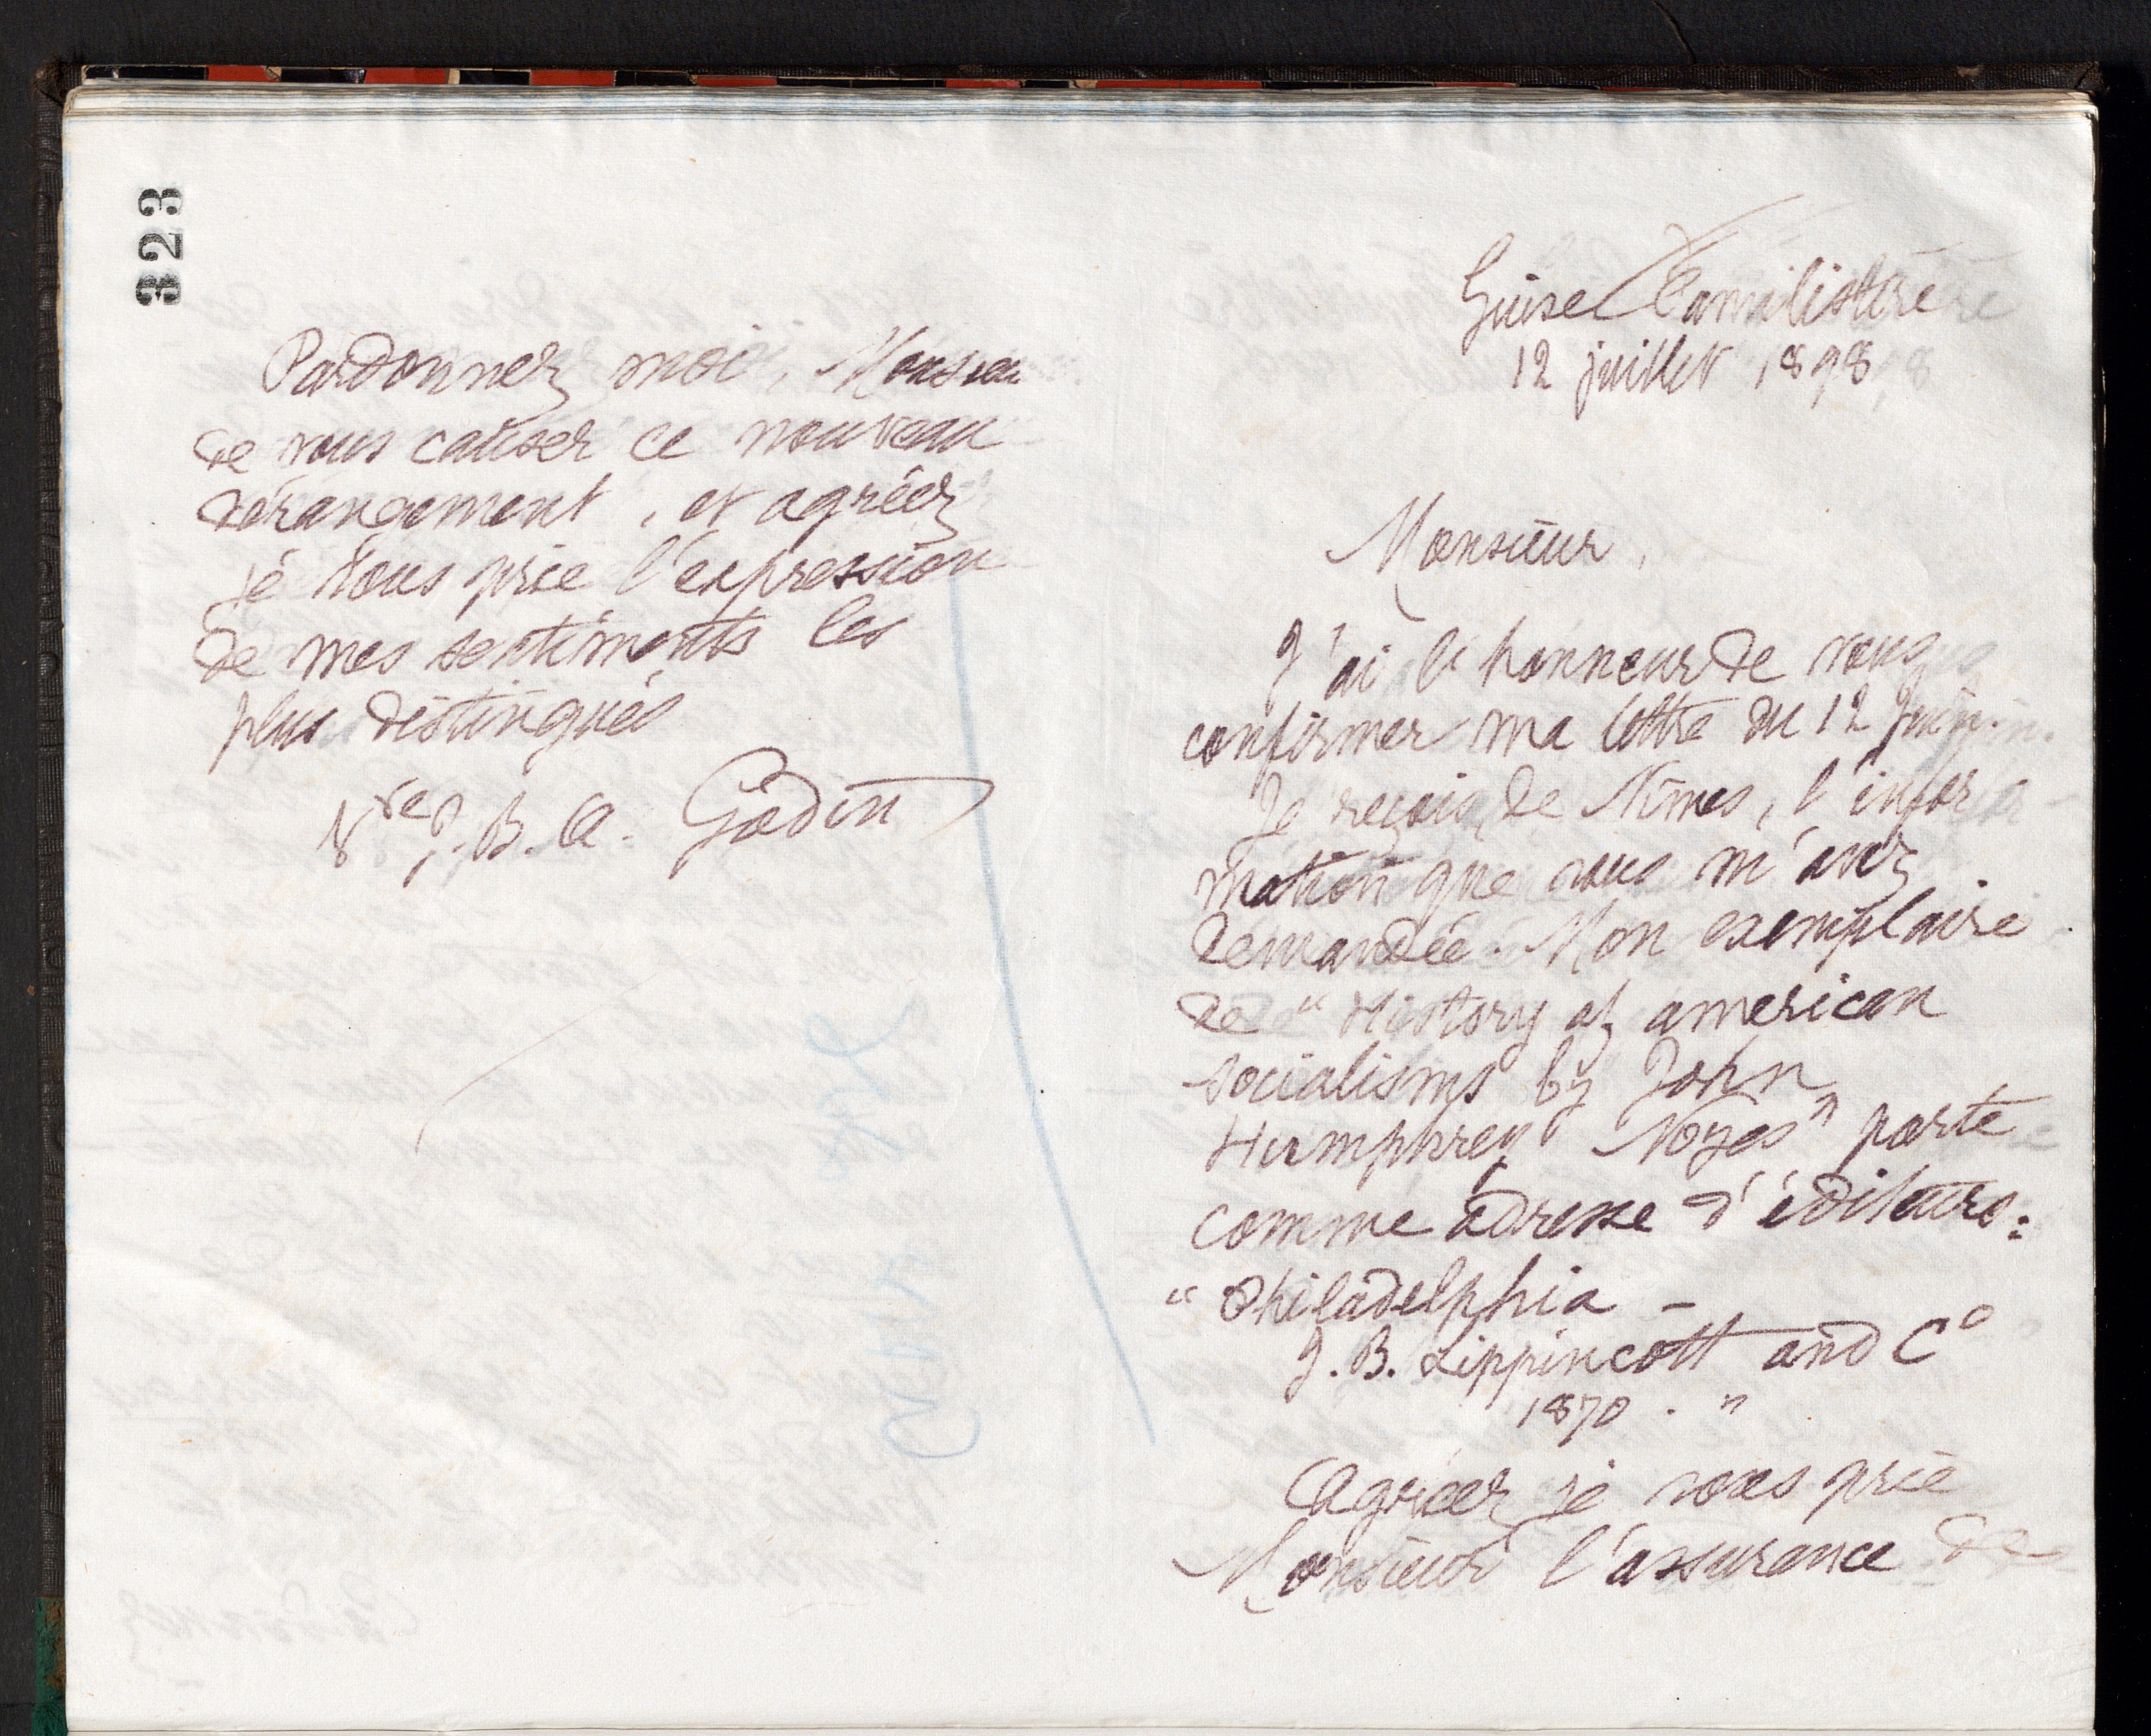 323
Pardonnez moi, Monsieur
de vous causer ce nouveau
dérangement, et agréez
je vous prie l'expression
de mes sentiments les
plus distingués
Vve J. B. A. Godin
Guise Familistère
12 juillet 1898
Monsieur,
J'ai l'honneur de vous
confirmer ma lettre du 12 Juin.
Je reçois, de Nîmes, l'infor-
mation que vous m'avez
demandée. Mon exemplaire
de "History of american
socialisms by John
Humphrey Noyes" porte
comme adresse d'éditeurs:
"Philadelphia -
J. B. Lippincott and Co
1870. "
Agréez je vous prie
Monsieur l'assurance de